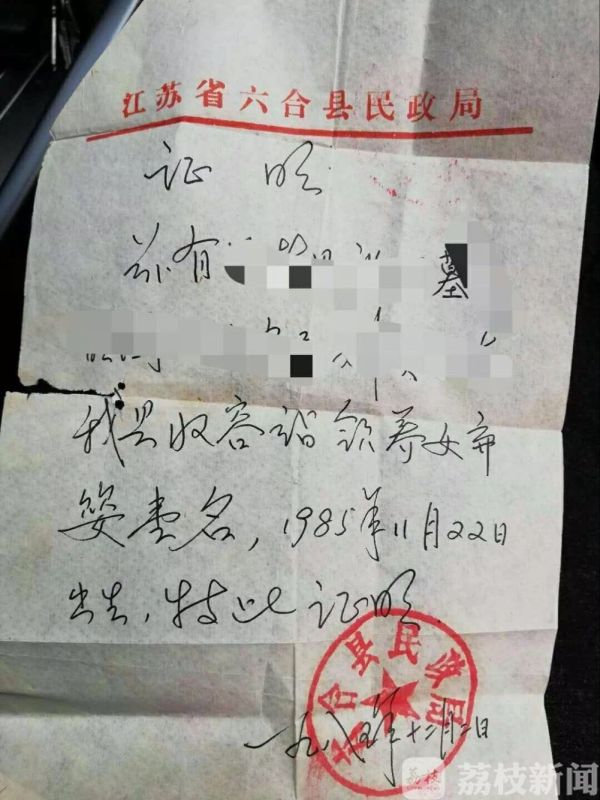 江苏省六合县民政局
证 明
兹有 墓
我县收容站领养女弃
婴壹名，1985年11月22日
出生，特此证明.
六合县民政局
一九八五年十二月二日
荔枝新闻